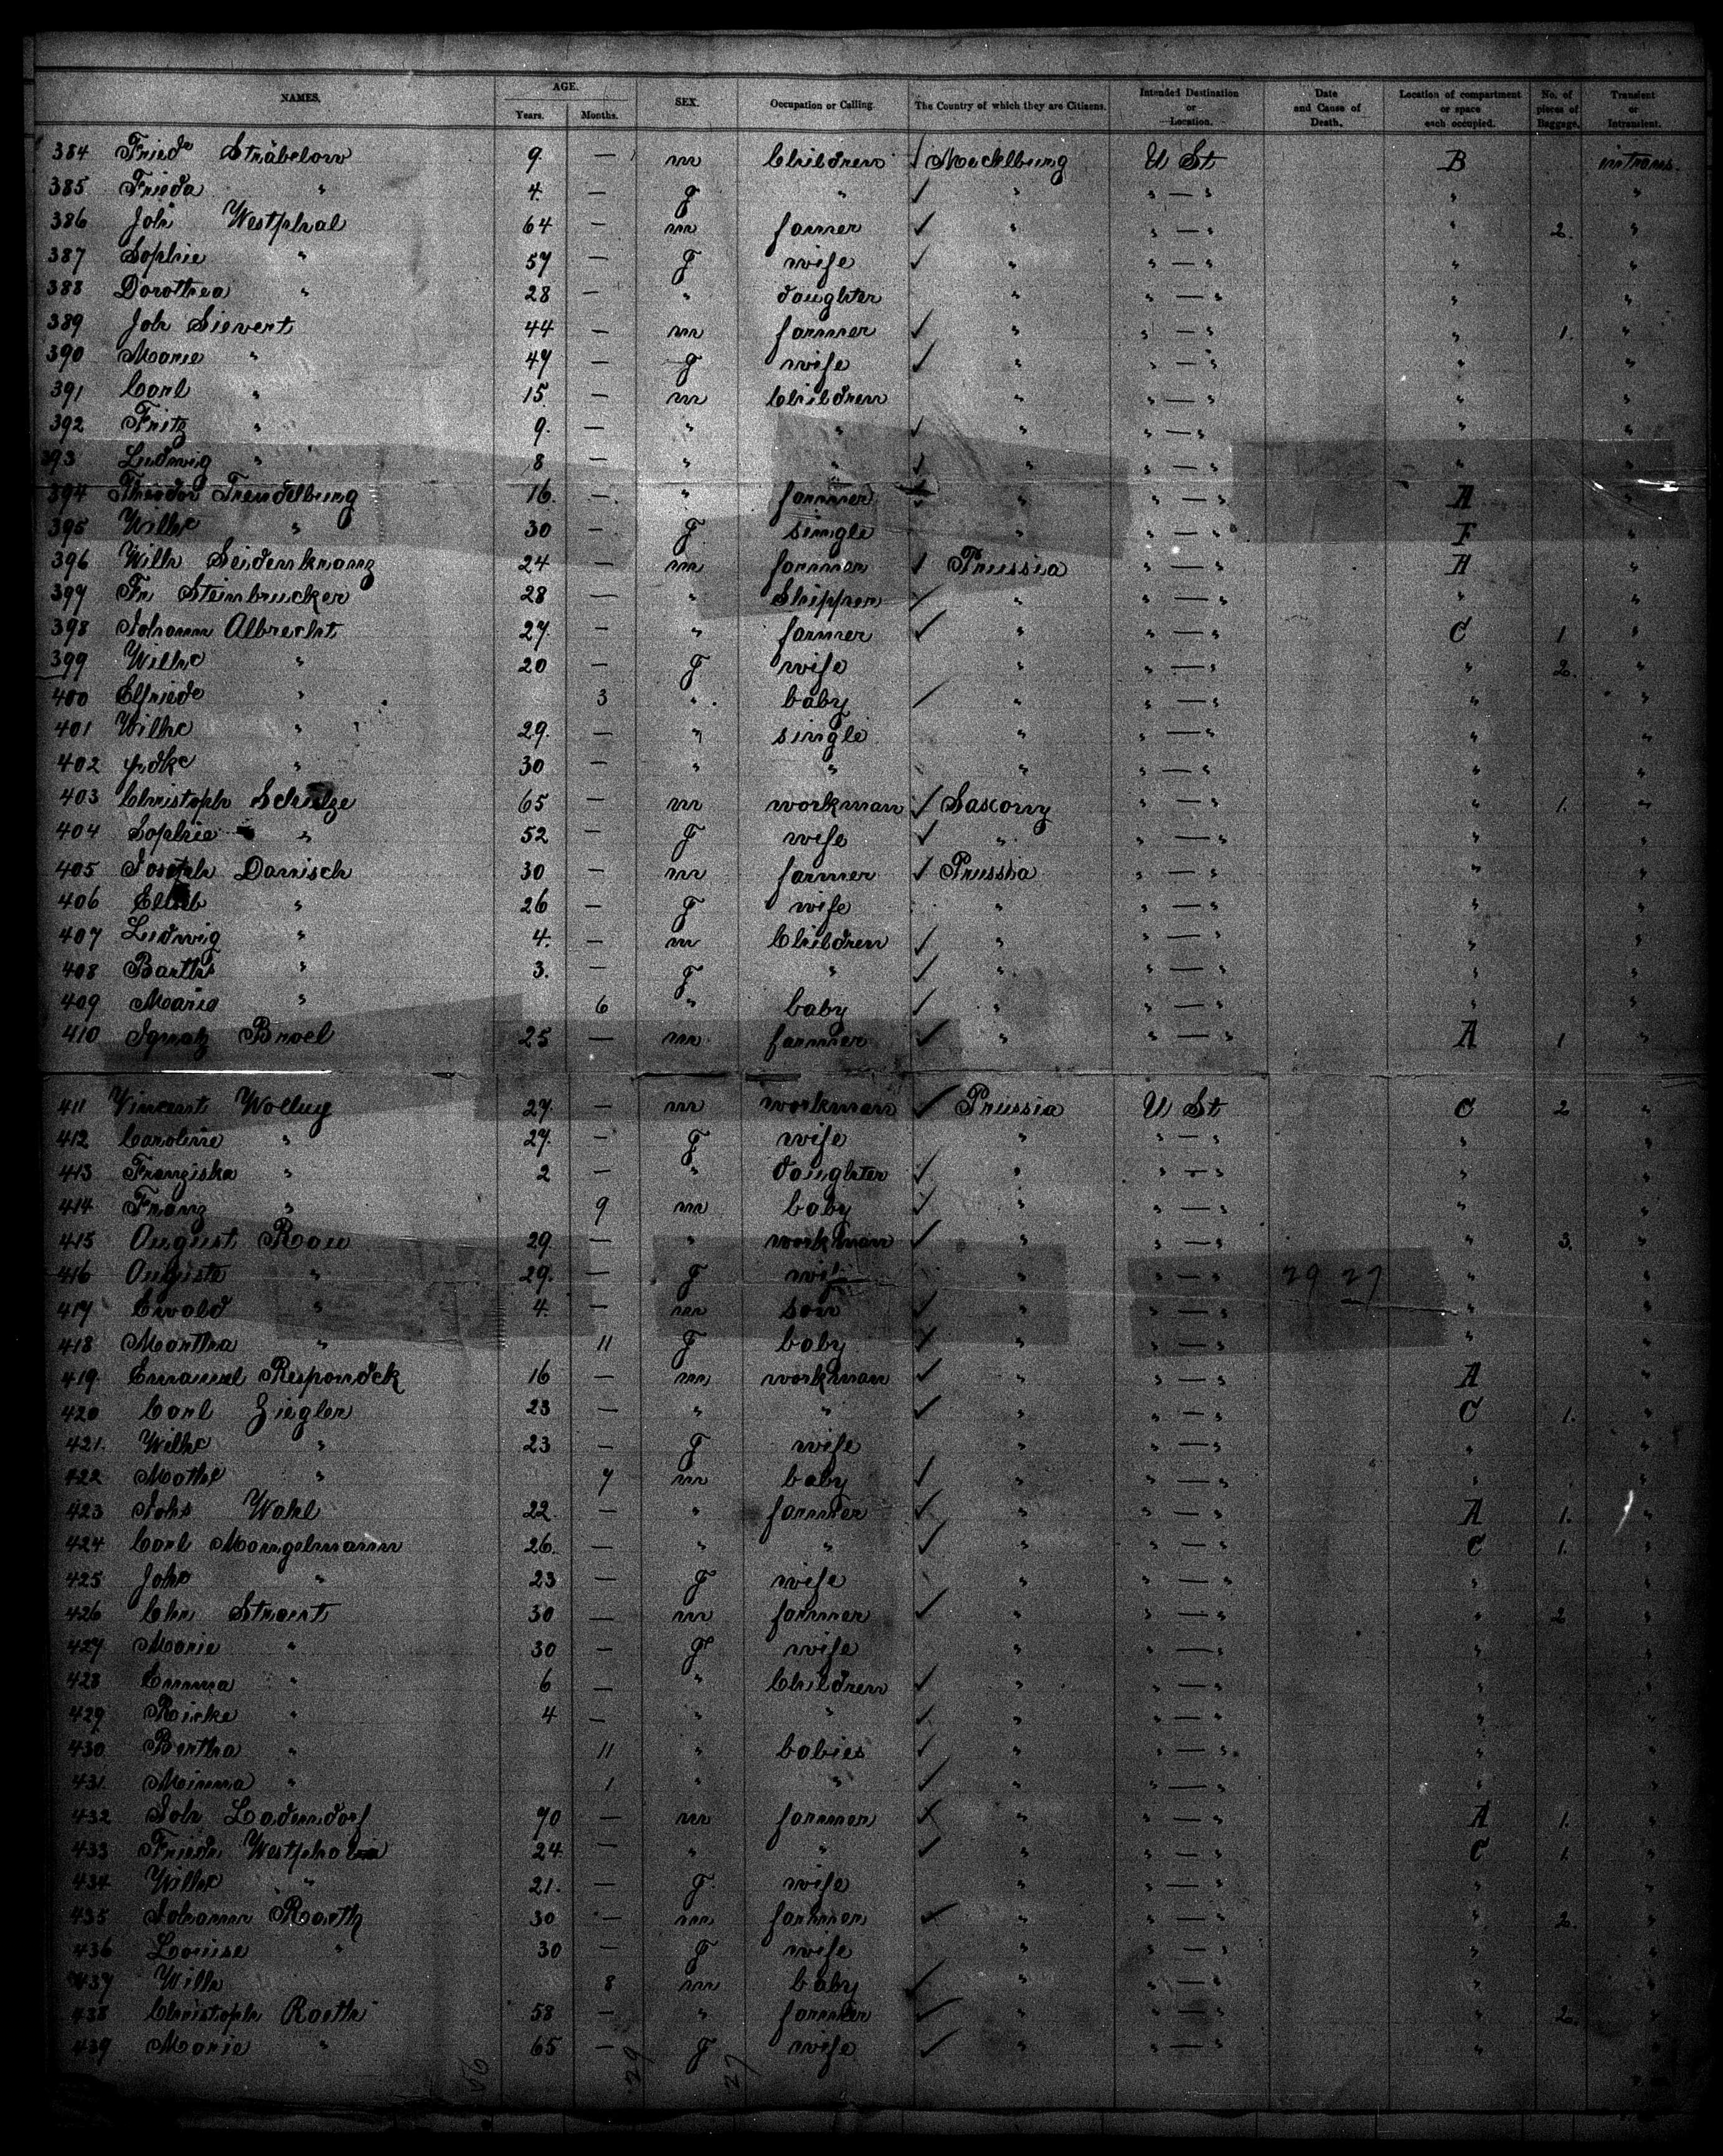 NAMES. AGE. Years. Months. SEX. Occupation or Calling. The Country of which they are Citizens. Intended Destination or Location. Date and Cause of Death. Location of compartment or space each occupied. No. of pieces of Baggage. Transient or Intransient.
384 Friede Sträbelow 9 — m Children ✓ Mecklburg U St B intrans.
385 Frieda " 4. — f " ✓ " " — " " "
386 Joh Westphal 64 — m farmer ✓ " " — " " 2. "
387 Sophie " 57 — f wife ✓ " " — " " "
388 Dorothea " 28 — " daughter " " — " " "
389 Joh Sievert 44 — m farmer ✓ " " — " " 1. "
390 Marie " 47 — f wife ✓ " " — " " "
391 Carl " 15. — m Children " " — " " "
392 Fritz " 9. — " " ✓ " " — " " "
393 Ludwig " 8 — " " ✓ " " — " " "
394 Theodor Trendelburg 16. — " farmer ✓ " " — " A "
395 Wilhe " 30 — f single " " — " F "
396 Wilh Seidenkranz 24 — m farmer ✓ Prussia " — " A "
397 Fr Steinbrucker 28 — " Shipper ✓ " " — " " "
398 Johann Albrecht 27. — " farmer ✓ " " — " C 1 "
399 Wilhe " 20 — f wife " " — " " 2. "
400 Elfriede " 3 " baby ✓ " " — " " "
401 Wilhe " 29. — " single " " — " " "
402 " 30 — " " " " — " " "
403 Christoph Schulze 65 — m workman ✓ Saxony " — " " 1. "
404 Sophie " 52 — f wife ✓ " " — " " "
405 Joseph Danisch 30 — m farmer ✓ Prussia " — " " "
406 " 26 — f wife " " — " " "
407 Ludwig " 4. — m Children ✓ " " — " " "
408 " 3. — f " ✓ " " — " " "
409 Marie " 6 " baby ✓ " " — " " "
410 Ignatz Broel 25 — m farmer ✓ " " — " A 1 "
411 Vincent 27. — m workman ✓ Prussia U St C 2 "
412 Caroline " 27. — f wife " " — " " "
413 Franziska " 2 — " daughter ✓ " " — " " "
414 Franz " 9 m baby ✓ " " — " " "
415 August Rau 29. — " workman ✓ " " — " " 3. "
416 Auguste " 29. — f wife " " — " 29 27 " "
417 Ewald " 4. — m son ✓ " " — " " "
418 Martha " 11 f baby ✓ " " — " " "
419. Emanuel Respondek 16 — m workman ✓ " " — " A "
420 Carl Ziegler 23 — " " ✓ " " — " C 1. "
421. Wilhe " 23 — f wife " " — " " "
422 " 7 m baby ✓ " " — " " "
423 Johs Wahl 22. — " farmer ✓ " " — " A 1. "
424 Carl Mangelmann 26. — " " ✓ " " — " C 1. "
425 Johe " 23 — f wife " " — " " "
426 Chr 30 — m farmer ✓ " " — " " 2 "
427 Marie " 30 — f wife " " — " " "
428 Emma " 6 — " Children ✓ " " — " " "
429 Ricke " 4 — " " ✓ " " — " " "
430 Bertha " 11 " babies ✓ " " — " " "
431. Minna " 1 " " ✓ " " — " " "
432 Joh Ladendorf 70 — m farmer ✓ " " — " A 1. "
433 Friedr Westphal 24 — " " ✓ " " — " C 1. "
434 Wilhe " 21. — f wife " " — " " "
435 Johann 30 — m farmer ✓ " " — " " 2. "
436 Louise " 30 — f wife " " — " " "
437 Wilh 8 m baby ✓ " " — " " "
438 Christoph 58 — " farmer ✓ " " — " " 2. "
439 Marie " 65 — f wife ✓ " " — " " "
56 29 27